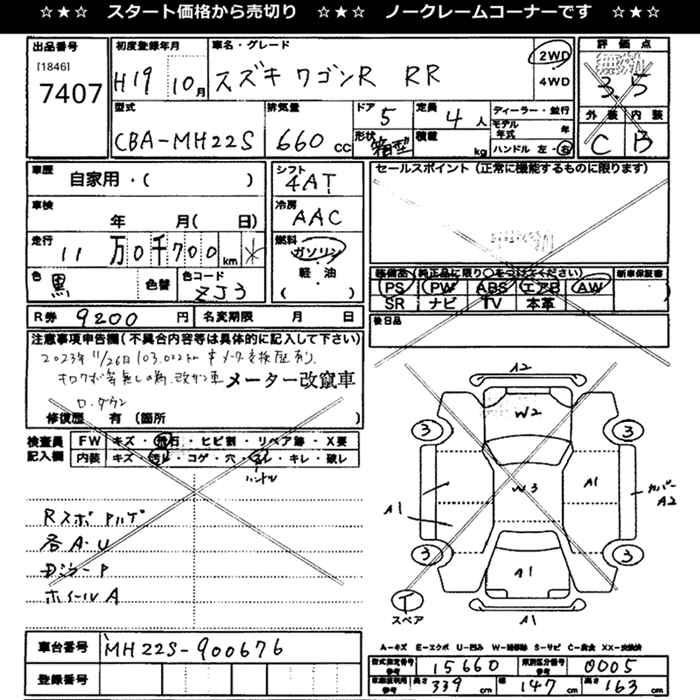 ☆★☆ スタート価格から売切り ☆★☆ ノークレームコーナーです ☆★☆
出品番号
[1846]
7407
初度登録年月
H19 10月
車名・グレード
スズキ ワゴンR RR
2WD
4WD
評価点
3.5
外装 内装
C B
型式
CBA-MH22S
排気量
660 cc
ドア
5
形状
箱型
定員
4人
積載
kg
ディーラー・並行
モデル年式 年
ハンドル 左・右
車歴
自家用・( )
車検
年 月( 日)
走行
11万0千700 km
色
黒
色替
色コード
ZJ3
シフト
4AT
冷房
AAC
燃料
ガソリン
軽・油
( )
セールスポイント(正常に機能するものに限ります)
装備品(純正品に限り○をつけてください)
PS PW ABS エアB AW
SR ナビ TV 本革
新車保証書
後日品
R券 9200円
名変期限 月 日
注意事項申告欄(不具合内容等は具体的に記入して下さい)
2023年11/26日103.022km
メーター改竄車
ロ.ダウン
修復歴 有 (箇所 )
検査員記入欄
FW キズ・飛石・ヒビ割・リペア跡・X要
内装 キズ・汚レ・コゲ・穴・スレ・キレ・破レ
ハンドル
各A・U
ホイールA
A2
W2
3
3
W3
A1
A1
カバー
A2
3
3
A1
A1
T
スペア
A-キズ E-エクボ U-凹み W-補修跡 S-サビ C-腐食 XX-交換済
車台番号
MH22S-900676
登録番号
型式指定番号 参考
15660
類別区分番号 参考
0005
車両積載利用 参考
長さ 339 cm
幅 147 cm
高さ 163 cm